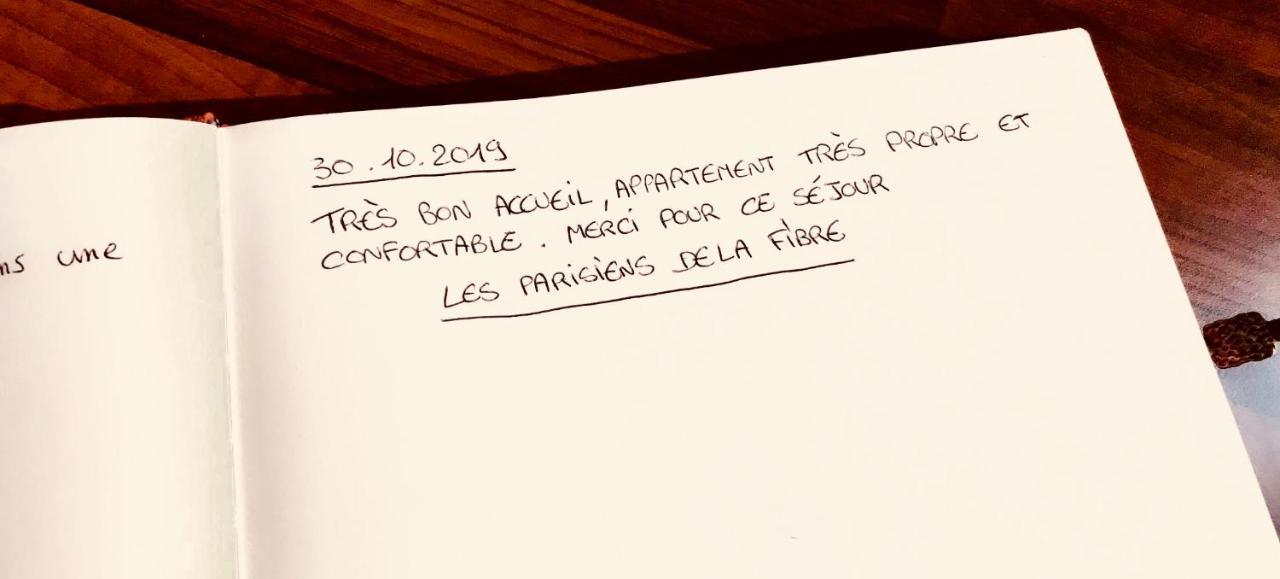 ns une
30.10.2019
TRÈS BON ACCUEIL, APPARTEMENT TRÈS PROPRE ET
CONFORTABLE. MERCI POUR CE SÉJOUR
LES PARISIENS DELA FIBRE